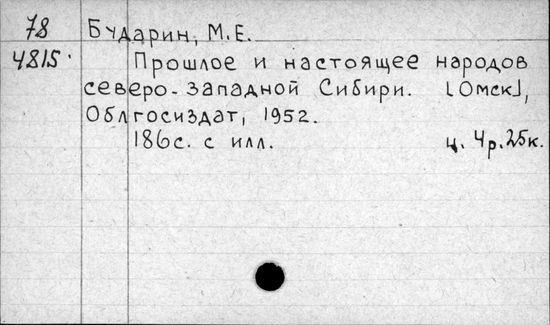 78 Бударин, М.Е.
4815. Прошлое и настоящее народов
северо-западной Сибири. [Омск],
Облгосиздат, 1952.
186с. с илл. ц. 4р.25к.